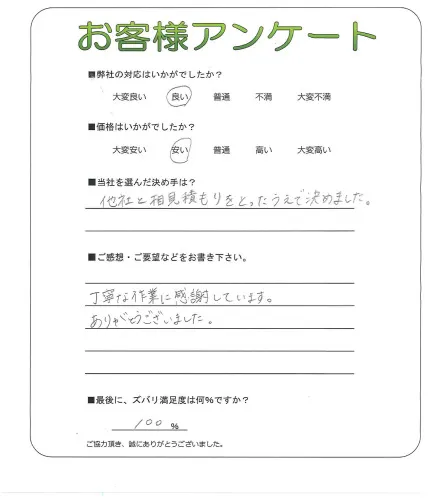 お客様アンケート
■弊社の対応はいかがでしたか？
大変良い 良い 普通 不満 大変不満
■価格はいかがでしたか？
大変安い 安い 普通 高い 大変高い
■当社を選んだ決め手は？
他社と相見積もりをとったうえで決めました。
■ご感想・ご要望などをお書き下さい。
丁寧な作業に感謝しています。
ありがとうございました。
■最後に、ズバリ満足度は何％ですか？
100 %
ご協力頂き、誠にありがとうございました。